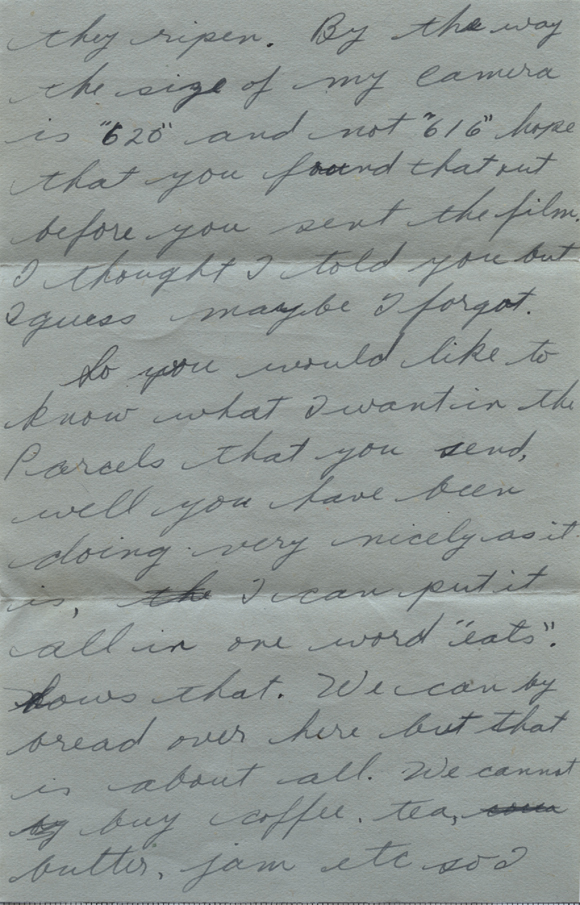 they ripen. By the way
the size of my camera
is "620" and not "616" hope
that you found that out
before you sent the film.
I thought I told you but
I guess maybe I forgot.
So you would like to
know what I want in the
Parcels that you send,
well you have been
doing very nicely as it
is, the I can put it
all in one word "eats".
hows that. We can by
bread over here but that
is about all. We cannot
by buy coffee. tea,
butter, jam etc so I